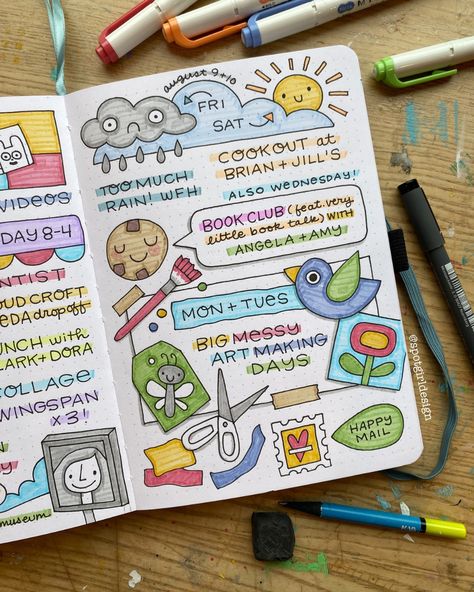 VIDEOS
DAY 8-4
NTIST
OUD CROFT
EDA dropoff
UNCH with
LARK + DORA
OLLAGE
WINGSPAN
x 3!
museum
august 9+10
FRI
SAT
TOO MUCH
RAIN! WFH
COOKOUT at
BRIAN + JILL'S
ALSO WEDNESDAY!
BOOK CLUB (feat. very
little book talk) WITH
ANGELA + AMY
MON + TUES
BIG MESSY
ART MAKING
DAYS
HAPPY
MAIL
@spotgirldesign